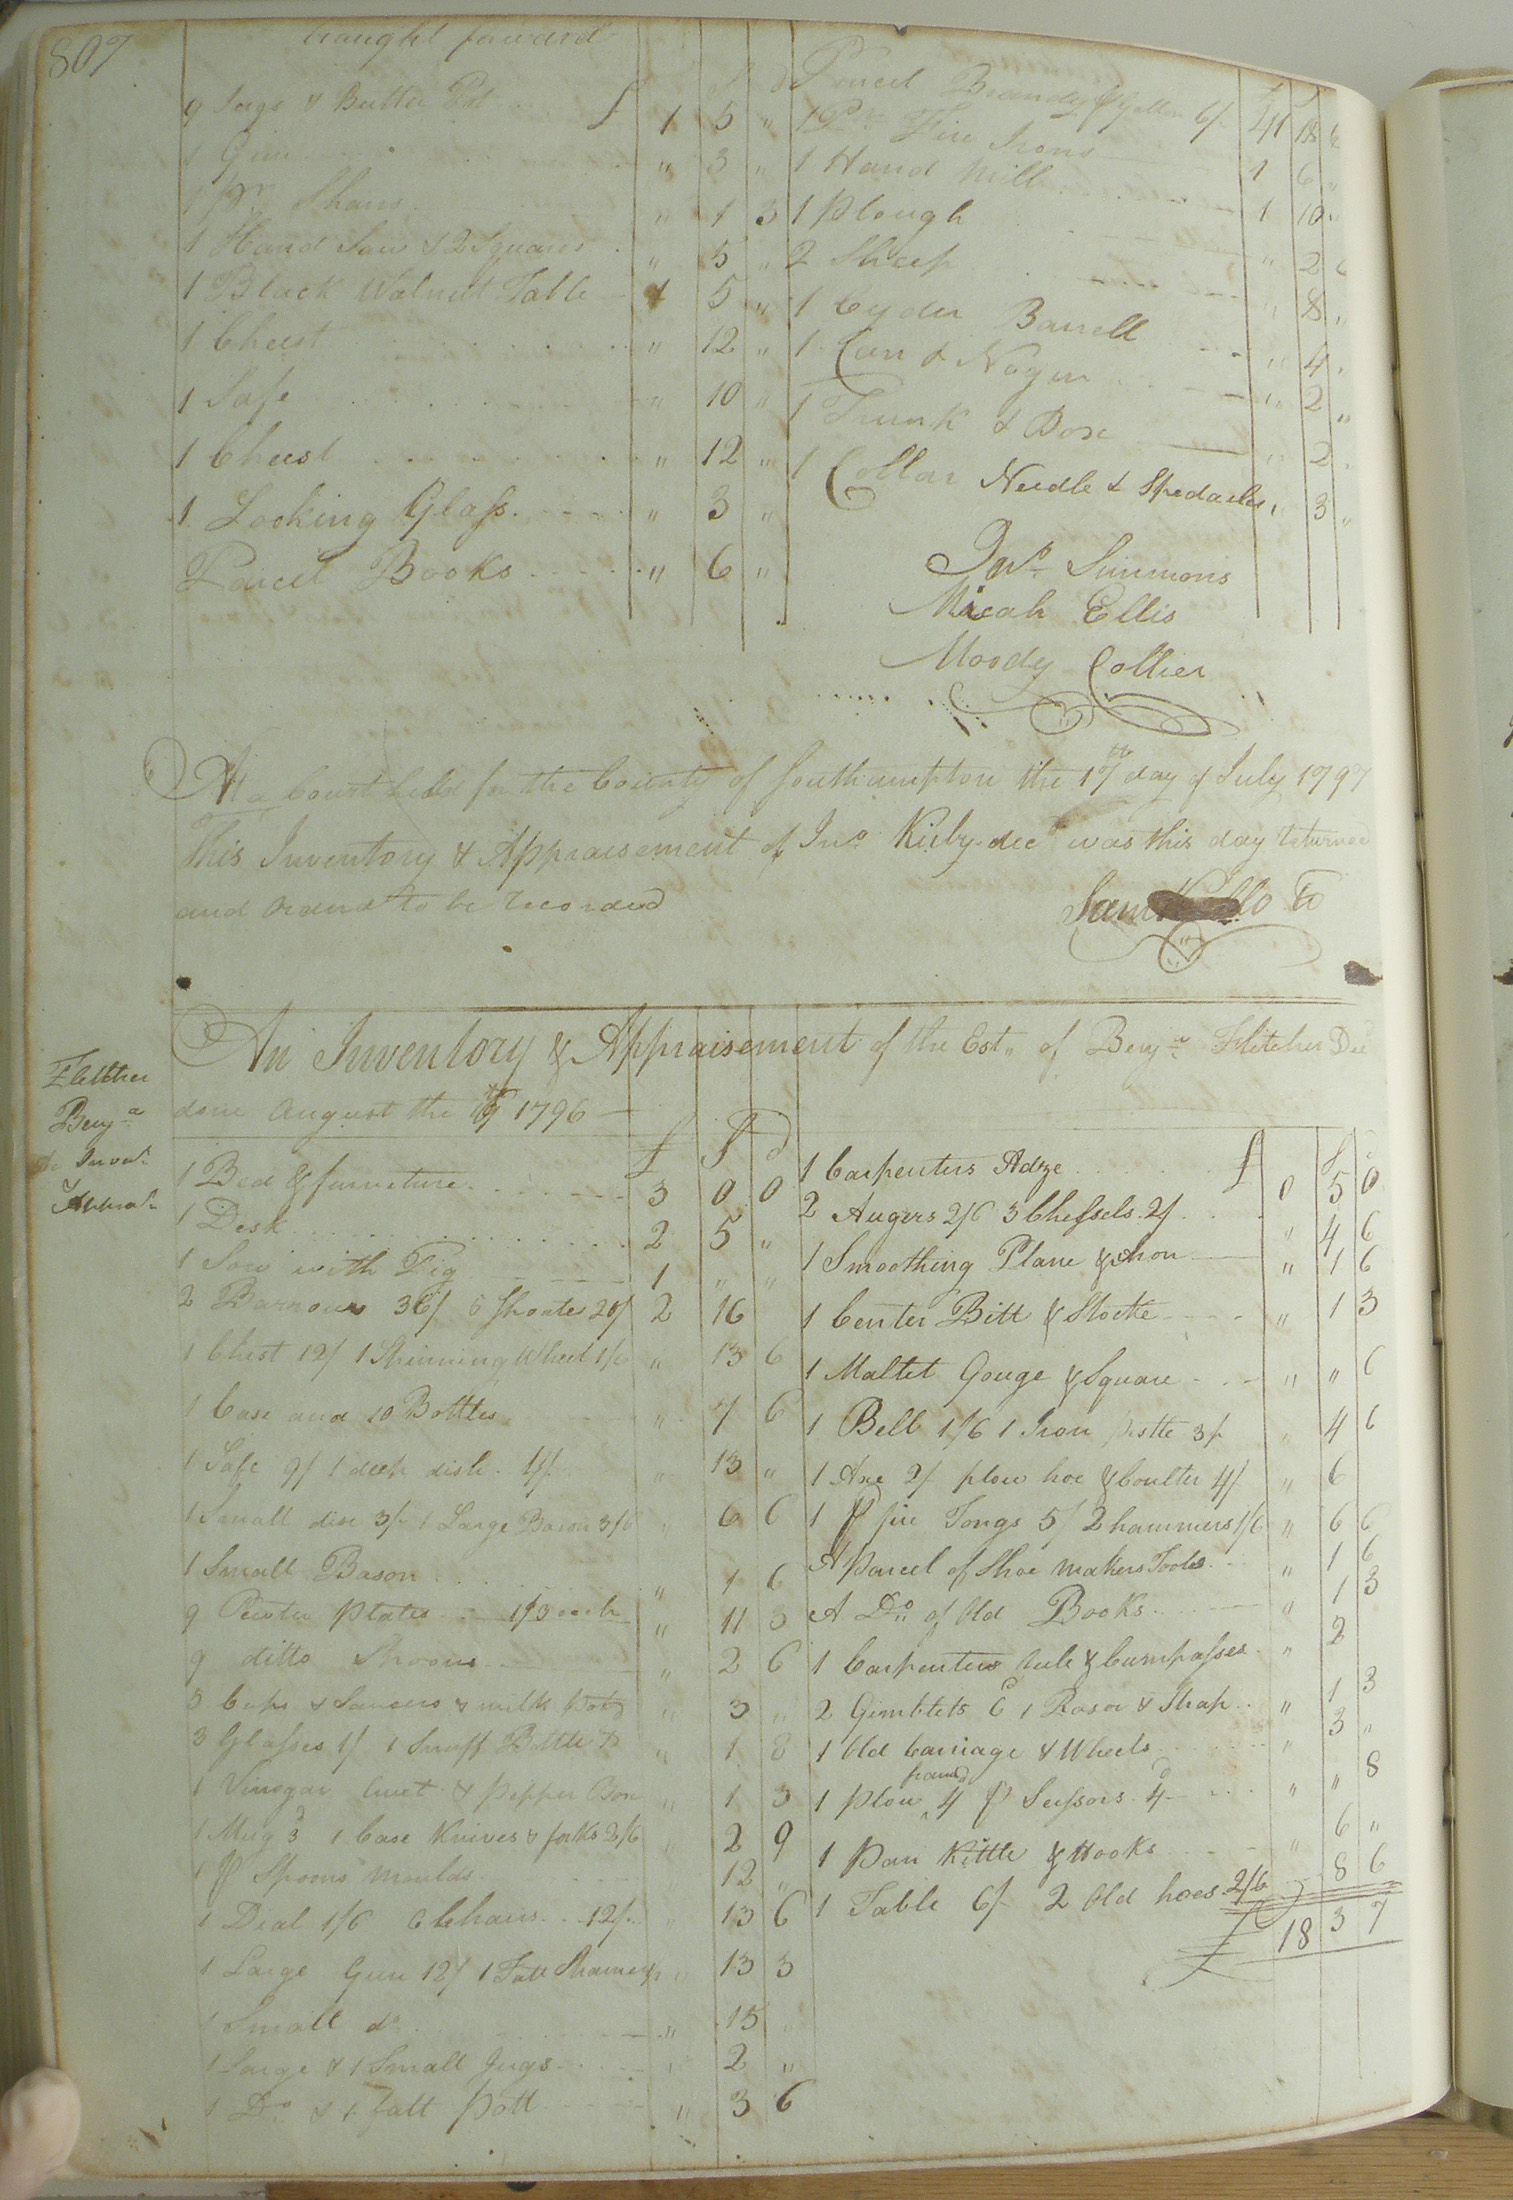 807
brought forward
9 Jugs & Butter Pot £ 1 5 "
1 Gun " 3 "
1 pr. Shears " 1 3
1 Hand Saw & 2 Squares " 5 "
1 Black Walnut Table 1 5 "
1 Chest " 12 "
1 Safe " 10 "
1 Chest " 12 "
1 Looking Glass " 3 "
Parcel Books " 6 "
Parcel Brandy Gallon 6/ 41 18 6
1 Pr. Fire Irons 1 6 "
1 Hand Mill 1 10 "
1 Plough " 2 6
2 Sheep " 8 "
1 Cyder Barrell " 4 "
1 Can & Nogin " 2 "
1 Trunk & Box " 2 "
1 Collar Needle & Spectacles " 3 "
Jno. Simmons
Micah Ellis
Moody Collier
At a Court held for the County of Southampton the 17th day of July 1797
This Inventory & Appraisement of Jno. Kirby decd was this day returned
and ordered to be recorded
Sam
An Inventory & Appraisement of the Est" of Benja. Fletcher Decd
done August the 1796
Fletcher
Benja
Inv
Appra
£ S d
1 Bed & furneture 3 0 0
1 Desk 2 5 "
1 Sow with Pig 1 " "
2 Barrows 36/ 6 Shoates 20/ 2 16
1 Chest 12/ 1 Spinning Wheel 1/6 " 13 6
1 Case and 10 Bottles " 7 6
1 Safe 9/ 1 deep dish 4/ " 13 "
1 Small dise 3/ 1 Large Bason 3/6 " 6 6
1 Small Bason " 1 6
9 Pewter plates 1/3 each " 11 3
9 ditto Spoons " 2 6
5 Cups & Saucers & milk pot " 3 "
3 Glasses 1/ 1 Snuff Bottle " 1 8
1 Vinegar Cruet & pepper Box " 1 3
1 Mug 3d 1 Case Knives & forks 2/6 " 2 9
1 p Spoons moulds 12 "
1 Dial 1/6 6 Chairs 12/ " 13 6
1 Large Gun 12/ 1 " 13 3
1 Small do " 15 "
1 Large & 1 Small Jugs " 2 "
1 Do & 1 fatt pott " 3 6
£ S d
1 Carpenters Adze 0 5 0
2 Augers 2/6 3 Chessels 2/ " 4 6
1 Smoothing Plane & Iron " 1 6
1 Center Bitt & Stocke " 1 3
1 Maltet Gouge & Square " " 6
1 Bell 1/6 1 Iron pestle 3/ " 4 6
1 Axe 2/ plow hoe & Coulter 4/ " 6
1 p fire Tongs 5/ 2 hammers 1/6 " 6 6
A Parcel of Shoe makers Tools " 1 6
A Do of Old Books " 1 3
1 Carpenters rule & Cumpasses " 2
2 Gimblets 6d 1 Rasor & Strap " 1 3
1 Old Carriage & Wheels " 3 "
1 plow framed 4d p Scissors 4d " " 8
1 pan Kittle & Hooks " 6 "
1 Table 6/ 2 Old hoes 2/6 8 6
£ 18 3 7